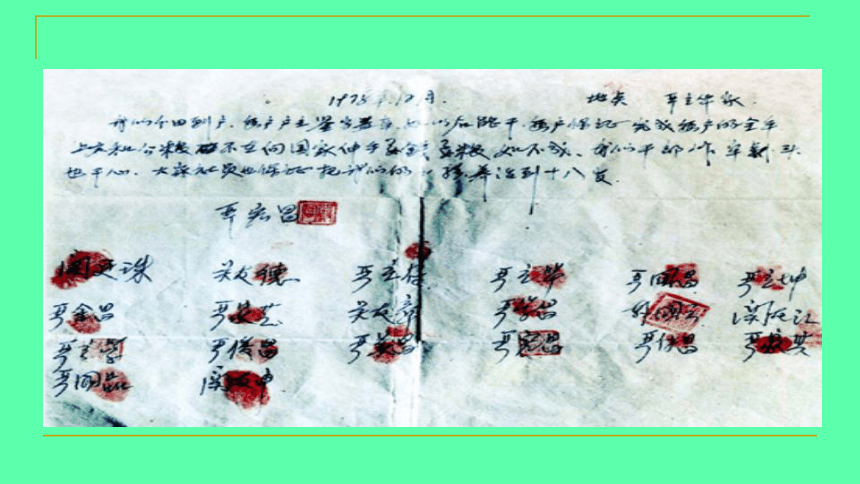 1978年12月. 地点 严立华家
我们分田到户,每户户主签字盖章,如以后能干,每户保证完成每户的全年
上交和公粮 不在向国家伸手要钱要粮,如不成,我们干部作牢刹头
也干心,大家社员也保证把我们的小孩养活到十八岁.
严宏昌
关廷珠 关友德 严立符 严立华 严国昌 严立坤
严金昌 严家芝 关友章 严学昌 韩国云 关友江
严立学 严俊昌 严美昌 严宏昌 严付昌 严家其
严国品 关友申